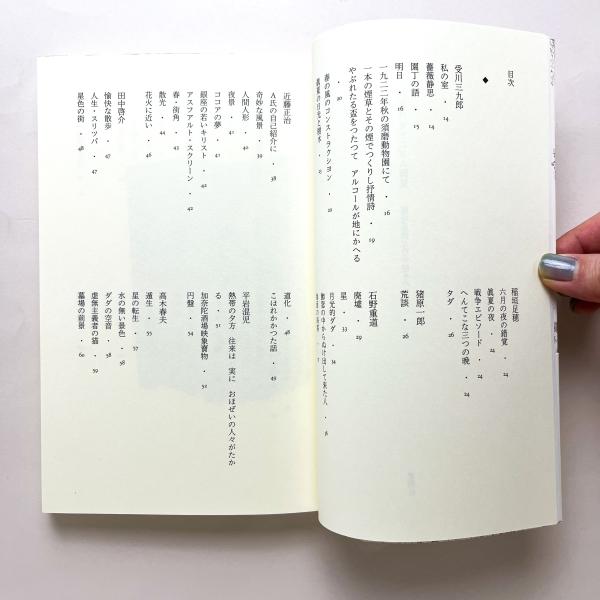 目次
◆
受川三九郎
私の室・14
薔薇静思・15
園丁の語・14
明日・16
一九三二年秋の須磨動物園にて・16
一本の煙草とその煙でつくりし抒情詩・19
やぶれたる盃をつたつて アルコールが地にかへる・20
春の風のコンストラクション・20
稲垣足穂
六月の夜の錯覚・24
眞夏の夜・24
戦争エピソード・24
へんてこな三つの晩・24
タダ・26
猪原一郎
荒談・26
石野重道
廃墟・31
星・33
月光的ダダ・34
近藤正治
A氏の自己紹介に・38
奇妙な風景・39
人間人形・40
夜景・41
ココアの夢・41
銀座の若いキリスト・42
アスファルト・スクリーン・42
春・街角・43
散光・44
花火に近い・46
田中啓介
愉快な散歩・47
人生・スリッパ・47
星色の街・48
道化・48
こはれかかつた話・49
平岩混児
熱帯の夕方 往来は 実に おほぜいの人々がたかる・51
加奈陀酒場映象賣物・52
円盤・54
高木春夫
蓮生・55
星の転生・57
水の無い景色・58
ダダの空音・58
虚無主義者の猫・59
墓場の前景・60